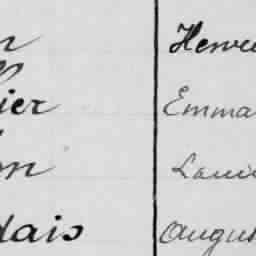 n Henri
ier Emma
on Louis
dais Augus